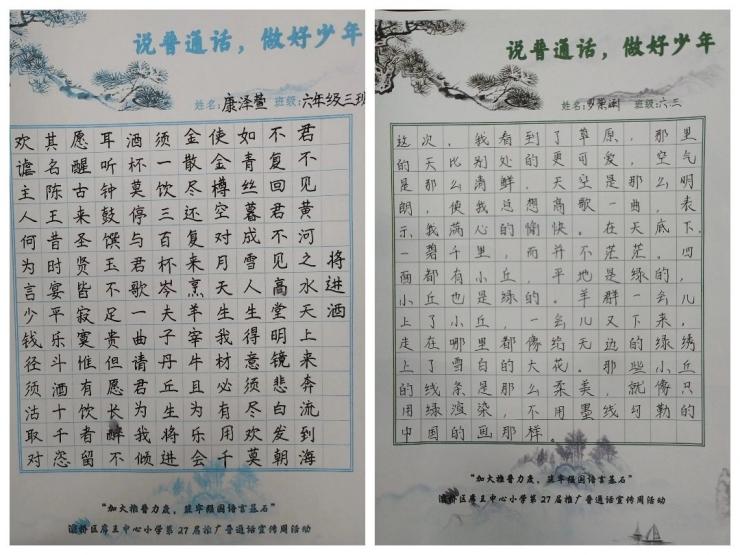 说普通话，做好少年
姓名：康泽萱 班级：六年级三班
将进酒
君不见黄河之水天上来奔流到海
不复回君不见高堂明镜悲白发朝
如青丝暮成雪人生得意须尽欢莫
使金樽空对月天生我材必有用千
金散尽还复来烹羊宰牛且为乐会
须一饮三百杯岑夫子丹丘生将进
酒杯莫停与君歌一曲请君为我倾
耳听钟鼓馔玉不足贵但愿长醉不
愿醒古来圣贤皆寂寞惟有饮者留
其名陈王昔时宴平乐斗酒十千恣
欢谑主人何为言少钱径须沽取对
“加大推普力度，筑牢强国语言基石”
灞桥区席王中心小学第27届推广普通话宣传周活动
说普通话，做好少年
姓名： 班级：六.三
这次，我看到了草原，那里
的天比别处的更可爱，空气
是那么清鲜，天空是那么明
朗，使我总想高歌一曲，表
示我满心的愉快。在天底下，
一碧千里，而并不茫茫。四
面都有小丘，平地是绿的，
小丘也是绿的。羊群一会儿
上了小丘，一会儿又下来，
走在哪里都像给无边的绿绣
上了雪白的大花。那些小丘
的线条是那么柔美，就像只
用绿渲染，不用墨线勾勒的
中国的画那样。
“加大推普力度，筑牢强国语言基石”
灞桥区席王中心小学第27届推广普通话宣传周活动